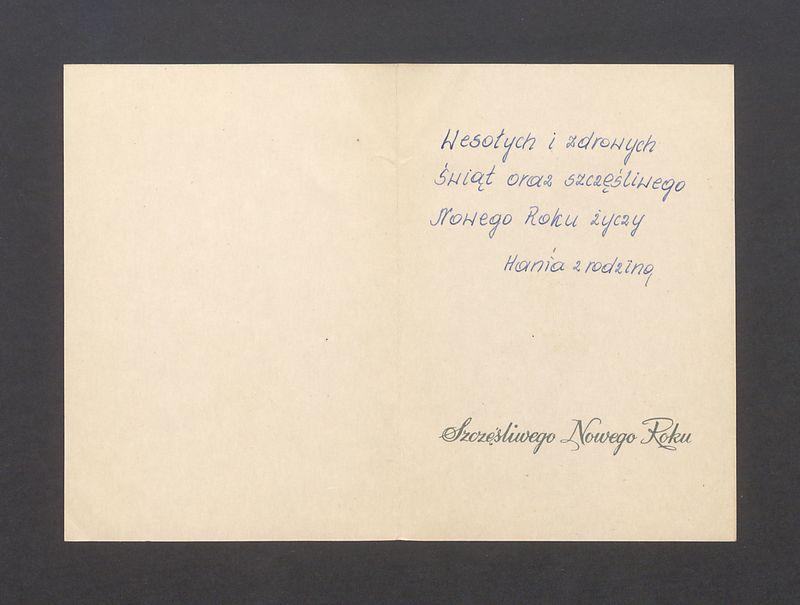 Wesołych i zdrowych
świąt oraz szczęśliwego
Nowego Roku życzy
Hania z rodziną
Szczęśliwego Nowego Roku